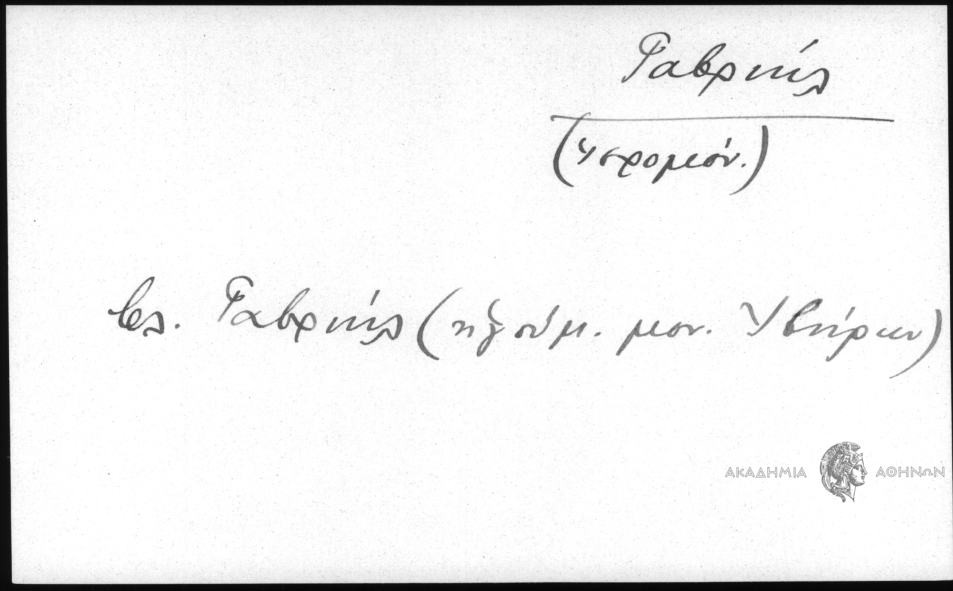 Γαβριήλ
(Ιερομόν.)
βλ. Γαβριήλ (ηγούμ. μον. Ιβήρων)
ΑΚΑΔΗΜΙΑ ΑΘΗΝΩΝ